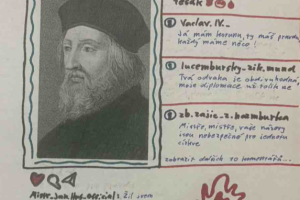 Václav. IV._
Já mám korunu, ty máš pravdu,
každý máme něco!
Lucemburský-zik.mund
Tvá odvaha je obdivuhodná,
moje diplomacie už tolik ne
zb.zajíc_z_hazmburka
Mistře, mistře, vaše názory
jsou nebezpečné pro jednotu
církve.
zobrazit dalších 10 komentářů...
Mistr_Jan_Hus_official